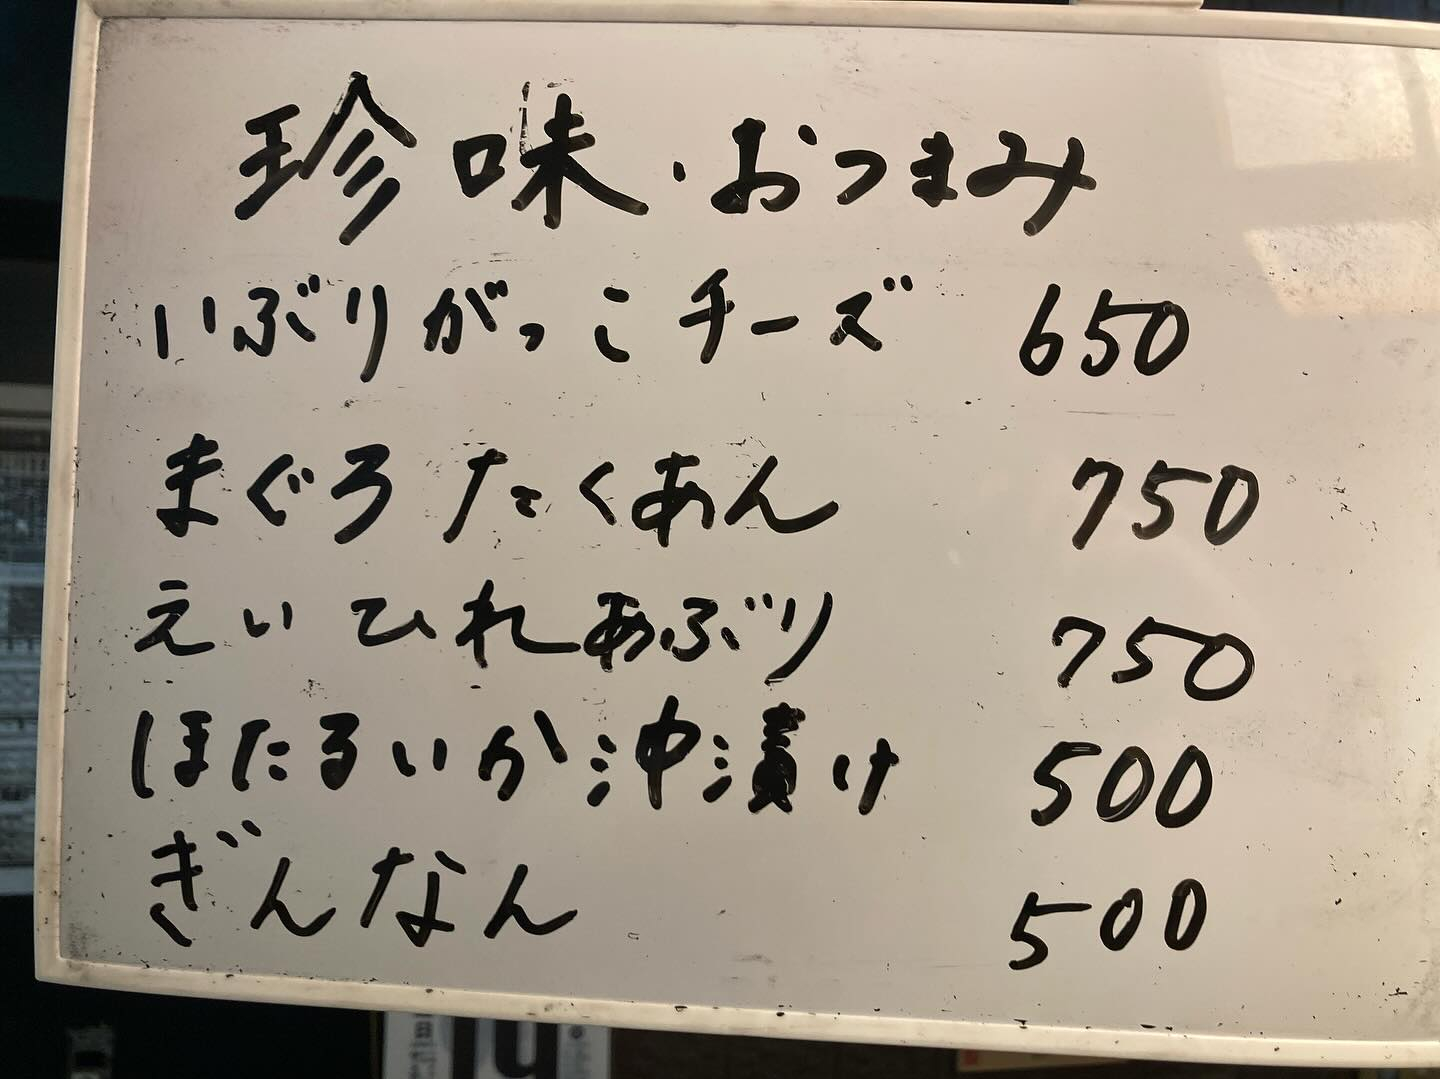 珍味・おつまみ
いぶりがっこチーズ 650
まぐろたくあん 750
えいひれあぶり 750
ほたるいか沖漬け 500
ぎんなん 500